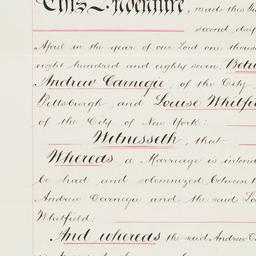 This Indenture, made this
second day
April in the year of our Lord one thous
eight hundred and eighty seven. Betw
Andrew Carnegie, of the City
Pittsburgh and Louise Whitfie
of the City of New York:
Witnesseth, that
Whereas a Marriage is intend
be had and solemnized between t
Andrew Carnegie and the said Lo
Whitfield:
And whereas the said Andrew C